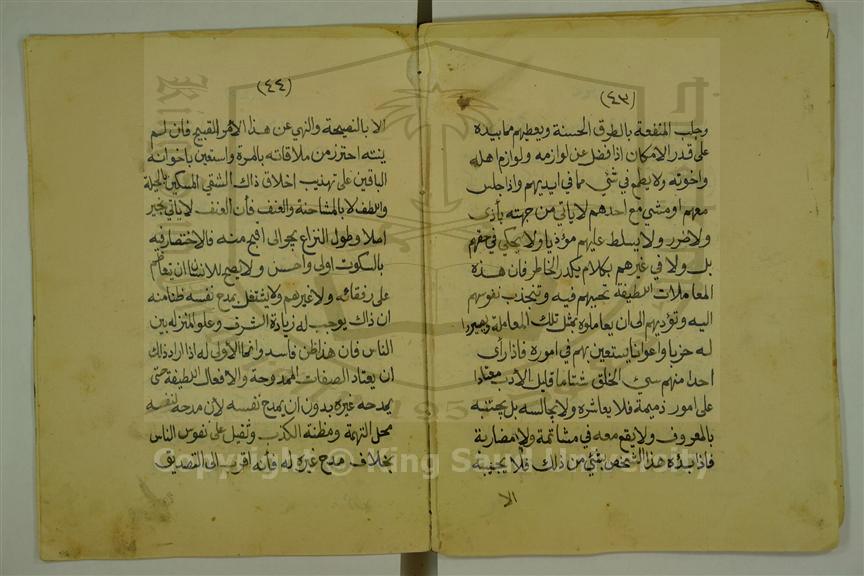 (٤٣)
وجلب المنفعة بالطرق الحسنة ويعطيهم مما بيده
على قدر الامكان اذا فضل عن لوازمه ولوازم اهله
واخوته ولا يطمع في شئ مما في ايديهم واذا جلس
معهم او مشي مع احدهم لا ياتي من جهته بأذى
ولا ضرر ولا يسلط عليهم مؤذيا ولا يحكي في حقهم
بل ولا في غيرهم بكلام يكدر الخاطر فان هذه
المعاملات اللطيفة تحببهم فيه وتنجذب نفوسهم
اليه وتؤديهم الى ان يعاملوه بمثل تلك المعاملة ويصيروا
له حزبا واعوانا يستعين بهم في اموره فاذا رأى
احدا منهم سيئ الخلق شتاما قليل الأدب معتادا
على امور ذميمة فلا يعاشره ولا يجالسه بل يجتنبه
بالمعروف ولا يقع معه في مشاتمة ولا مضاربة
فاذا بدؤه هذا الشخص بشئ من ذلك فلا يجيبه
الا
(٤٤)
الا بالنصيحة والنهي عن هذا الأمر القبيح فان لم
ينته احترز من ملاقاته بالمرة واستعين باخوانه
الباقين على تهذيب اخلاق ذاك الشقي المسكين بالحيلة
واللطف لا بالمشاحنة والعنف فأن العنف لا ياتي بخير
اصلا وطول النزاع يجر الى اقبح منه فالاختصار فيه
بالسكوت اولى واحسن ولا يصح للانسان ان يتعاظم
على رفقائه ولا غيرهم ولا يشتغل بمدح نفسه ظنا منه
ان ذاك يوجب له زيادة الشرف وعلو المنزله بين
الناس فان هذا ظن فاسد وانما الأولى له اذا اراد ذاك
ان يعتاد الصفات الممدوحة والافعال اللطيفة حتى
يمدحه غيره بدون ان يمدح نفسه لأن مدحه لنفسه
محل التهمة ومظنة الكذب وثقيل على نفوس الناس
بخلاف مدح غيره له فأنه اقرب الى التصديق
Copyright © King Saud University
195